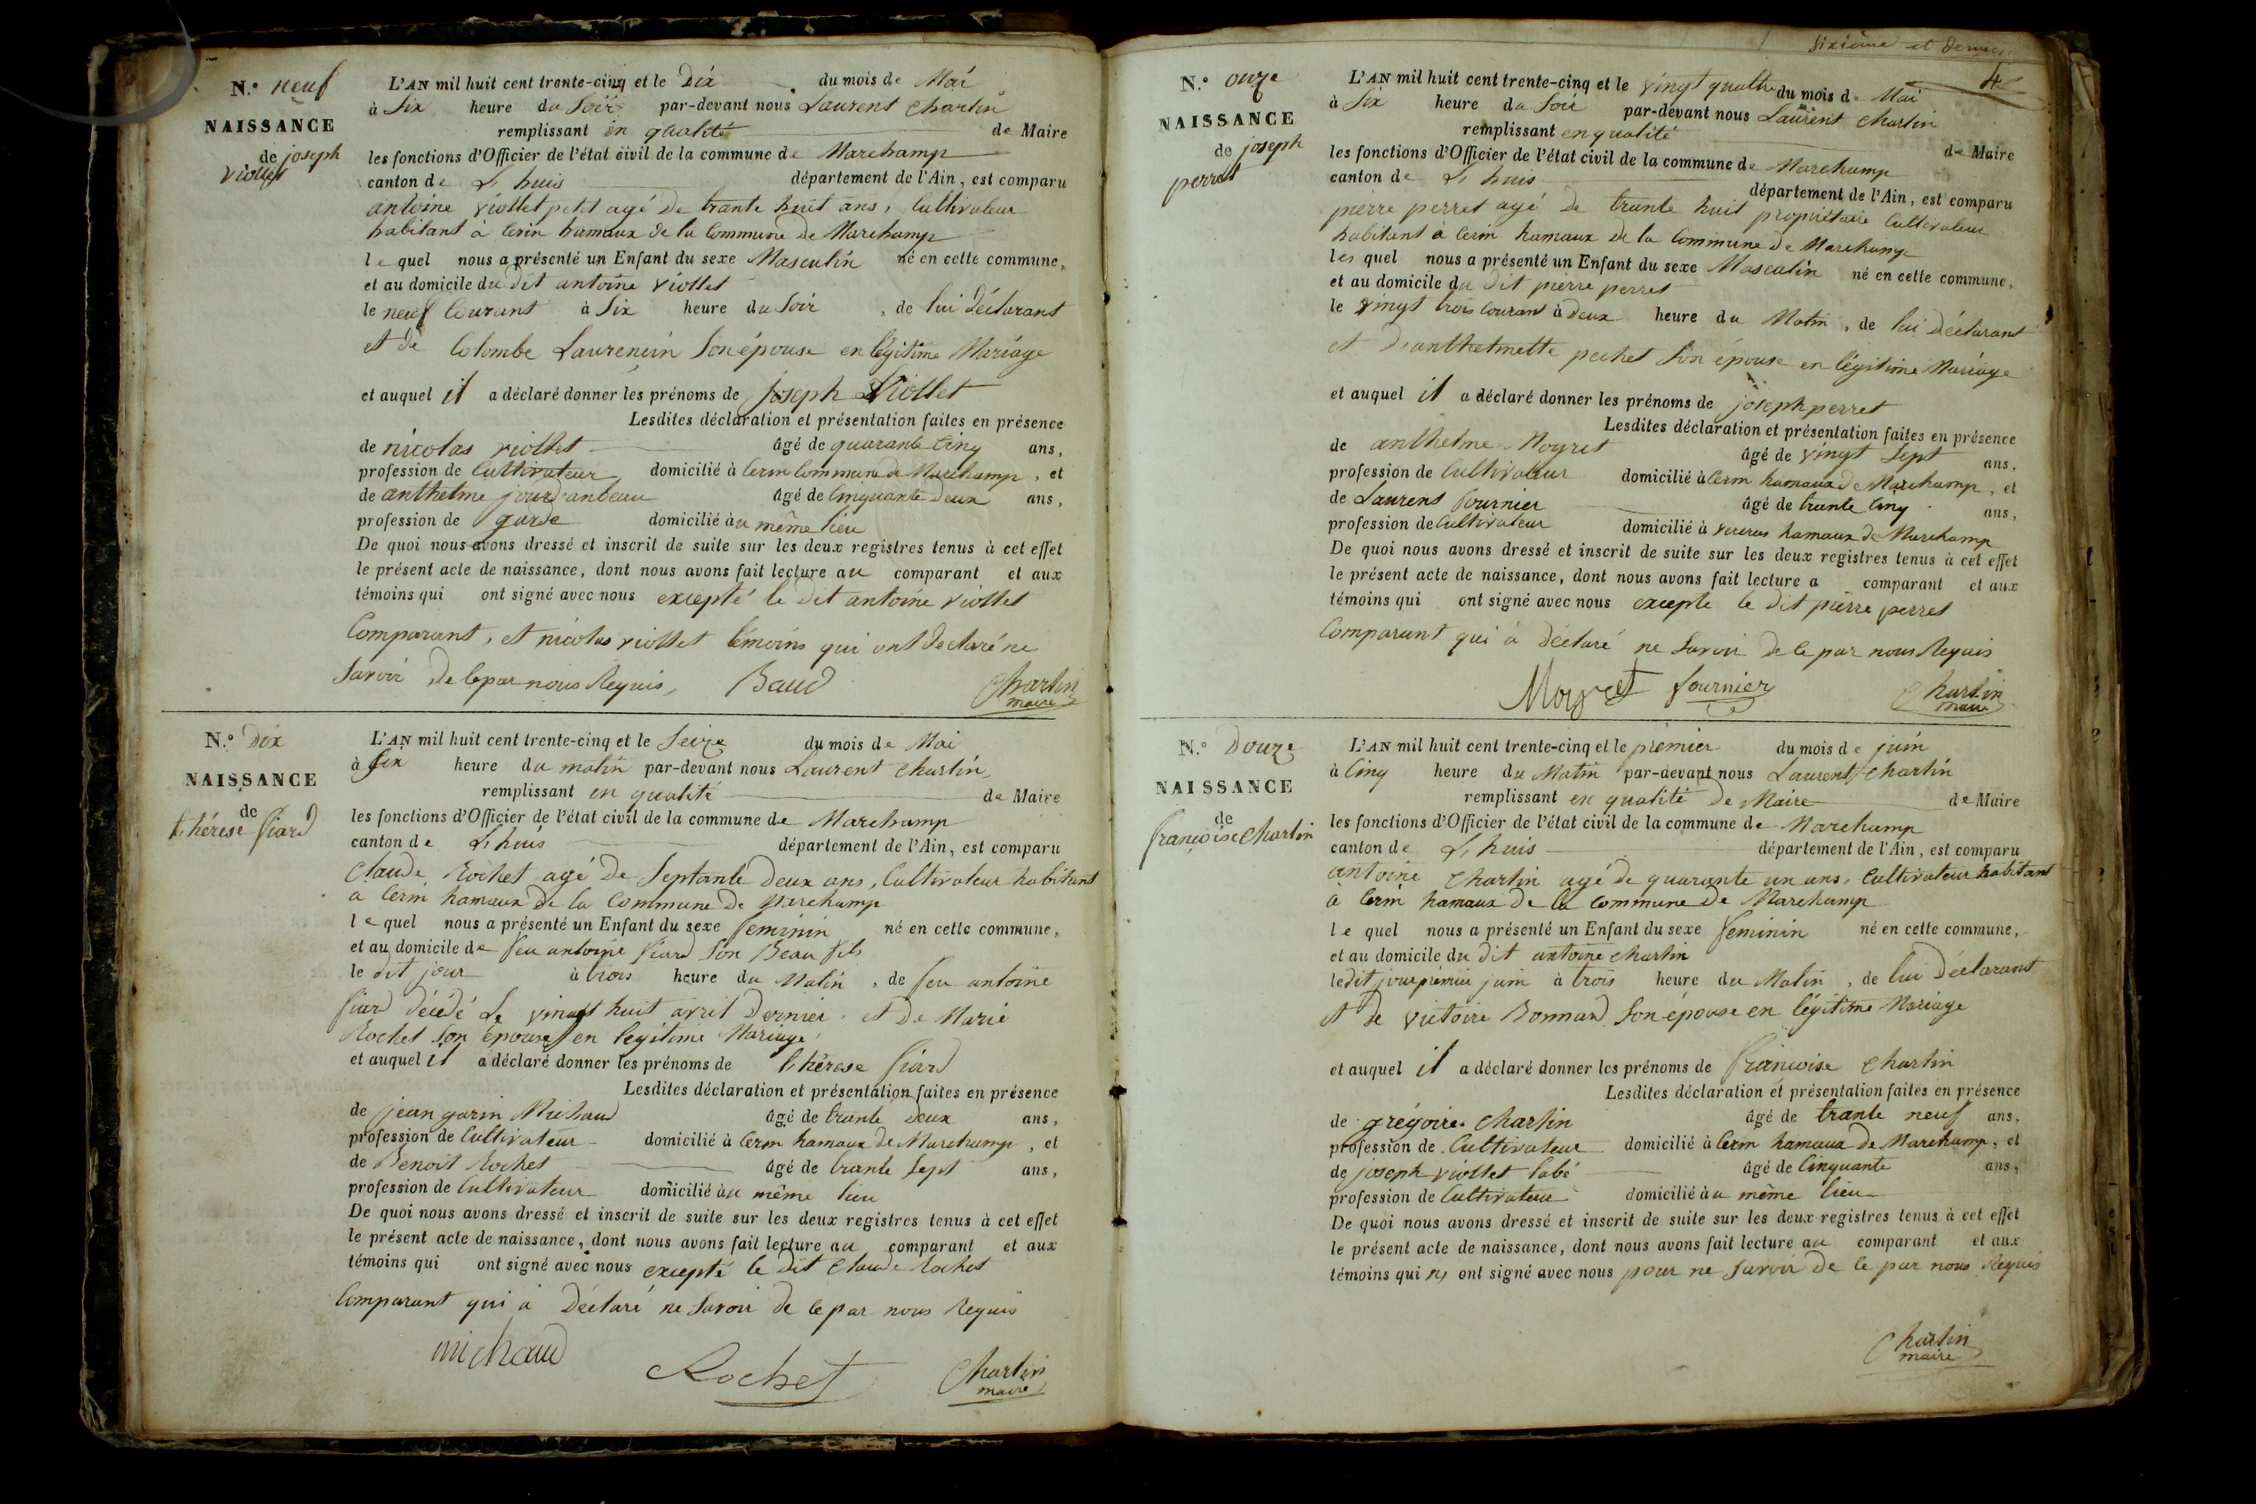 N.o neuf
NAISSANCE
de joseph
viollet
L'AN mil huit cent trente-cinq et le Dix du mois de Mai
à Six heure du Soir par-devant nous Laurent Charlin
remplissant en qualité de Maire
les fonctions d'Officier de l'état civil de la commune de Marchamp
canton de L, huis département de l'Ain, est comparu
antoine viollet petit agé de trante huit ans, Cultivateur
habitant à Cerin hamaux de la Commune de Marchamp
le quel nous a présenté un Enfant du sexe Masculin né en cette commune,
et au domicile du dit antoine viollet
le neuf Courant à Six heure du Soir, de lui déclarant
et de Colombe Laurencin Son épouse en légitime Mariage
et auquel il a déclaré donner les prénoms de joseph Viollet
Lesdites déclaration et présentation faites en présence
de nicolas viollet âgé de quarante Cinq ans,
profession de Cultivateur domicilié à Cerin Commune de Marchamp, et
de anthelme âgé de Cinquante Deux ans,
profession de garde domicilié àu même lieu
De quoi nous avons dressé et inscrit de suite sur les deux registres tenus à cet effet
le présent acte de naissance, dont nous avons fait lecture au comparant et aux
témoins qui ont signé avec nous excepté le dit antoine viollet
Comparant, et nicolas viollet témoins qui ont declaré ne
Savoir de ce par nous Requis, Baud Charlin
maire
N.o Dix
NAISSANCE
de
thérese fiard
L'AN mil huit cent trente-cinq et le Seize du mois de Mai
à Six heure du matin par-devant nous Laurent Charlin,
remplissant en qualité de Maire
les fonctions d'Officier de l'état civil de la commune de Marchamp
canton de L, huis département de l'Ain, est comparu
Claude Rochet agé de Septante deux ans, Cultivateur habitant
à Cerin hamaux de la Commune de Marchamp
le quel nous a présenté un Enfant du sexe feminin né en cette commune,
et au domicile de feu antoine fiard Son Beau fils
le dit jour à trois heure du Matin, de feu antoine
fiard décédé Le vingt huit avril Dernier et De Marie
Rochet Son épouse en legitime Mariage
et auquel il a déclaré donner les prénoms de thérese fiard
Lesdites déclaration et présentation faites en présence
de jean garin Michaud âgé de trante deux ans,
profession de Cultivateur domicilié à Cerin hamaux de Marchamp, et
de Benoit Rochet âgé de trante Sept ans,
profession de Cultivateur domicilié àu même lieu
De quoi nous avons dressé et inscrit de suite sur les deux registres tenus à cet effet
le présent acte de naissance, dont nous avons fait lecture au comparant et aux
témoins qui ont signé avec nous excepté le dit Claude Rochet
Comparant qui à Déclaré ne Savoir de ce par nous Requis
michaud Rochet Charlin
maire
Sixième et dernier
4
N.o onze
NAISSANCE
de joseph
perret
L'AN mil huit cent trente-cinq et le vingt quatre du mois de Mai
à Six heure du Soir par-devant nous Laurent Charlin
remplissant en qualité de Maire
les fonctions d'Officier de l'état civil de la commune de Marchamp
canton de L, huis département de l'Ain, est comparu
pierre perret agé de trante huit propriétaire Cultivateur
habitant à Cerin hamaux de la Commune de Marchamp
les quel nous a présenté un Enfant du sexe Masculin né en cette commune,
et au domicile du dit pierre perret
le vingt trois courant à deux heure du Matin, de lui déclarant
et d'anthelmette pochet Son épouse en légitime Mariage
et auquel il a déclaré donner les prénoms de joseph perret
Lesdites déclaration et présentation faites en présence
de anthelme Moyret âgé de vingt Sept ans,
profession de Cultivateur domicilié à Cerin hamaux de Marchamp, et
de Laurens fournier âgé de trante Cinq ans,
profession de Cultivateur domicilié à hamaux de Marchamp
De quoi nous avons dressé et inscrit de suite sur les deux registres tenus à cet effet
le présent acte de naissance, dont nous avons fait lecture a comparant et aux
témoins qui ont signé avec nous excepte le dit pierre perret
Comparant qui à déclaré ne Savoir de ce par nous Requis
Moyret fournier Charlin
maire
N.o Douze
NAISSANCE
de
françoise Charlin
L'AN mil huit cent trente-cinq et le premier du mois de juin
à Cinq heure du Matin par-devant nous Laurent Charlin
remplissant en qualité De Maire de Maire
les fonctions d'Officier de l'état civil de la commune de Marchamp
canton de L, huis département de l'Ain, est comparu
antoine Charlin agé de quarante un ans, Cultivateur habitant
à Cerin hamaux De la Commune De Marchamp
le quel nous a présenté un Enfant du sexe feminin né en cette commune,
et au domicile du dit antoine Charlin
le dit jour premier juin à trois heure du Matin, de lui déclarant
et de victoire Bonnard Son épouse en légitime Mariage
et auquel il a déclaré donner les prénoms de françoise Charlin
Lesdites déclaration et présentation faites en présence
de grégoire Charlin âgé de trante neuf ans,
profession de Cultivateur domicilié à Cerin hamaux de Marchamp, et
de joseph viollet labé âgé de Cinquante ans,
profession de Cultivateur domicilié àu même lieu
De quoi nous avons dressé et inscrit de suite sur les deux registres tenus à cet effet
le présent acte de naissance, dont nous avons fait lecture au comparant et aux
témoins qui ny ont signé avec nous pour ne Savoir De ce par nous Requis
Charlin
maire